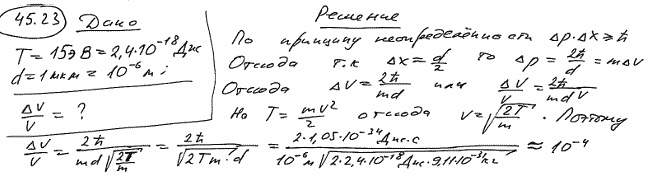 45.23 Дано
T = 15эВ = 2,4·10⁻¹⁸ Дж
d = 1 мкм = 10⁻⁶ м;
ΔV/V = ?
Решение
По принципу неопределённости Δp·Δx ≥ ħ
Отсюда т.к Δx = d/2 то Δp = 2ħ/d = mΔV
Отсюда ΔV = 2ħ/md или ΔV/V = 2ħ/mdV
Но T = mV²/2 отсюда V = √(2T/m). Поэтому
ΔV/V = 2ħ/(md√(2T/m)) = 2ħ/(√(2Tm)·d) = 2·1,05·10⁻³⁴ Дж·с/(10⁻⁶м√(2·2,4·10⁻¹⁸Дж·9,11·10⁻³¹кг)) ≈ 10⁻⁴